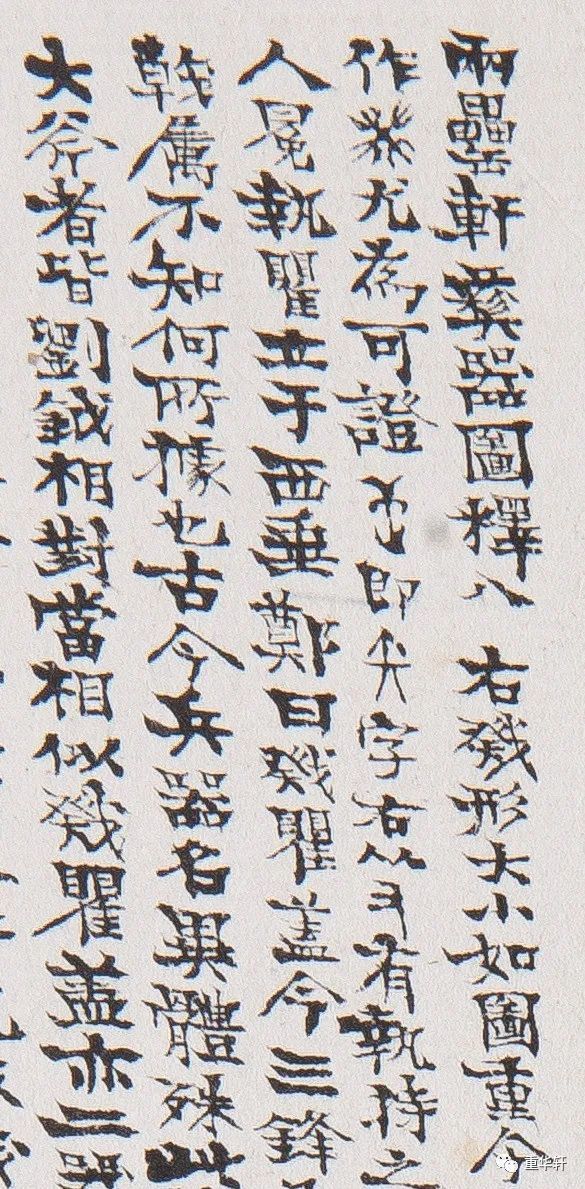 兩罍軒彝器圖釋八 右戣形大小如圖重今
作癸尤為可證 即矢字右从又有執持之
人冕執瞿立于西垂鄭曰戣瞿蓋今三鋒
戟屬不知何所據也古今兵器名異體殊此
大斧者皆劉鉞相對當相似戣瞿蓋亦二器
重华轩